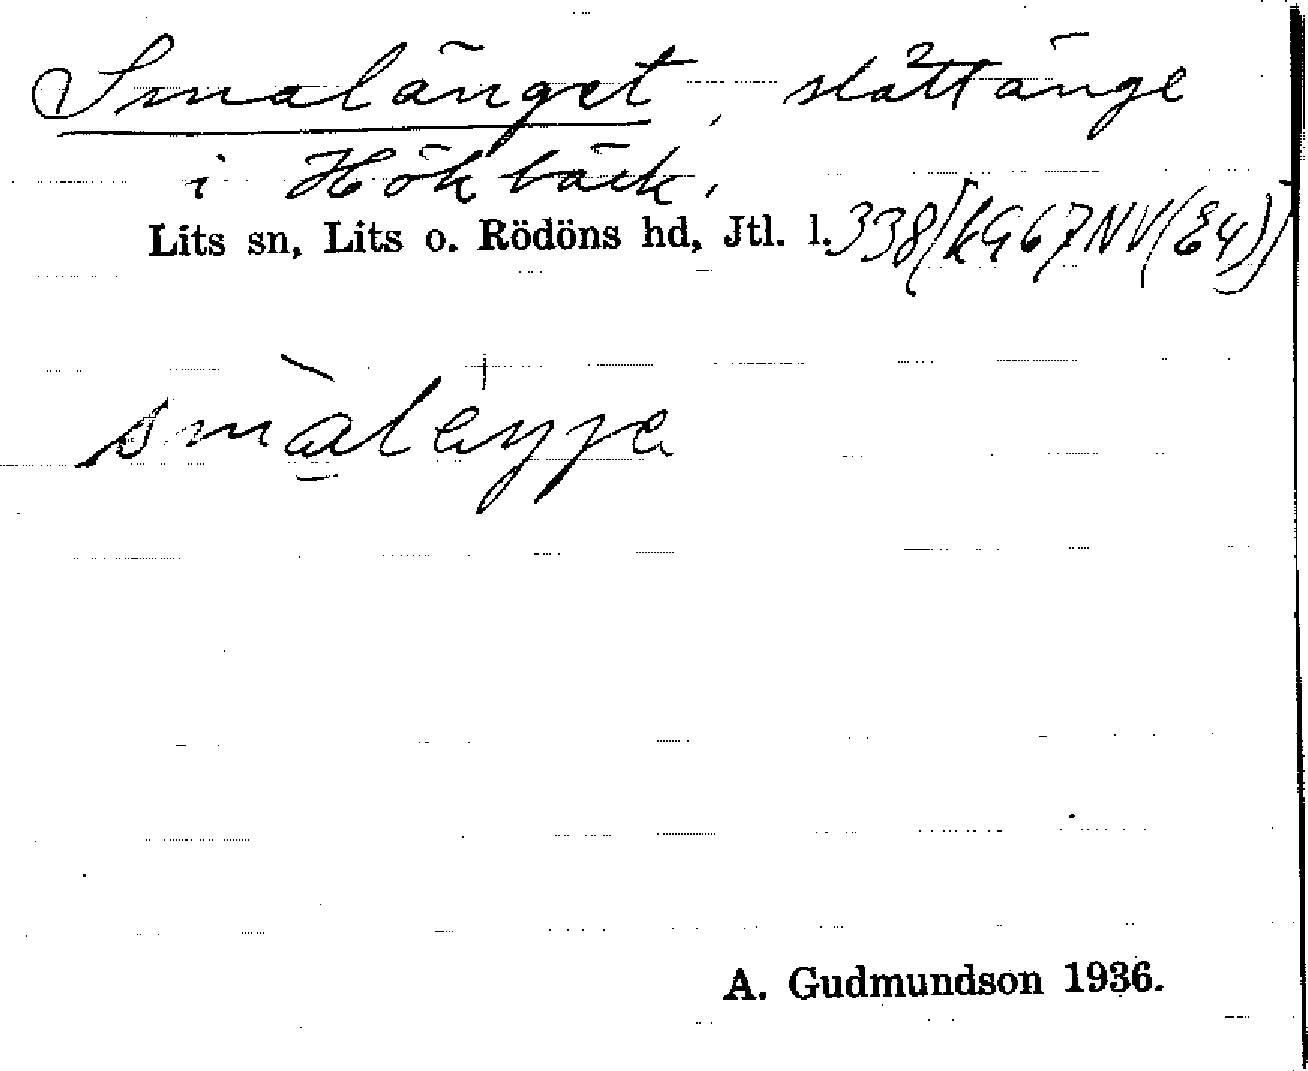 Smalänget, slåttänge
i Hökbäck,
Lits sn, Lits o. Rödöns hd, Jtl. l. 338/kG67NV(E4))
A. Gudmundson 1936.